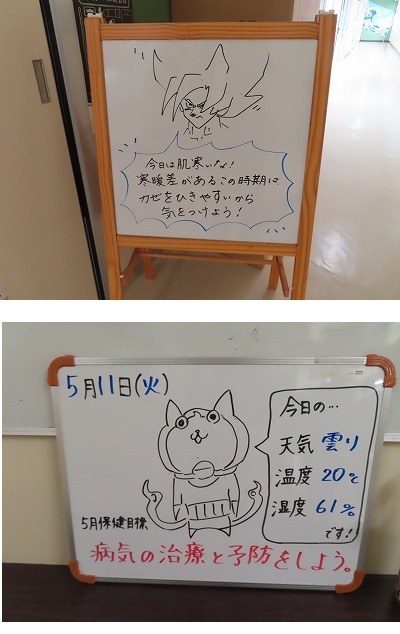 今日は肌寒いな!
寒暖差があるこの時期は
カゼをひきやすいから
気をつけよう!
5月11日(火)
今日の…
天気 雲り
温度 20℃
湿度 61%
です!
5月保健目標
病気の治療と予防をしよう。